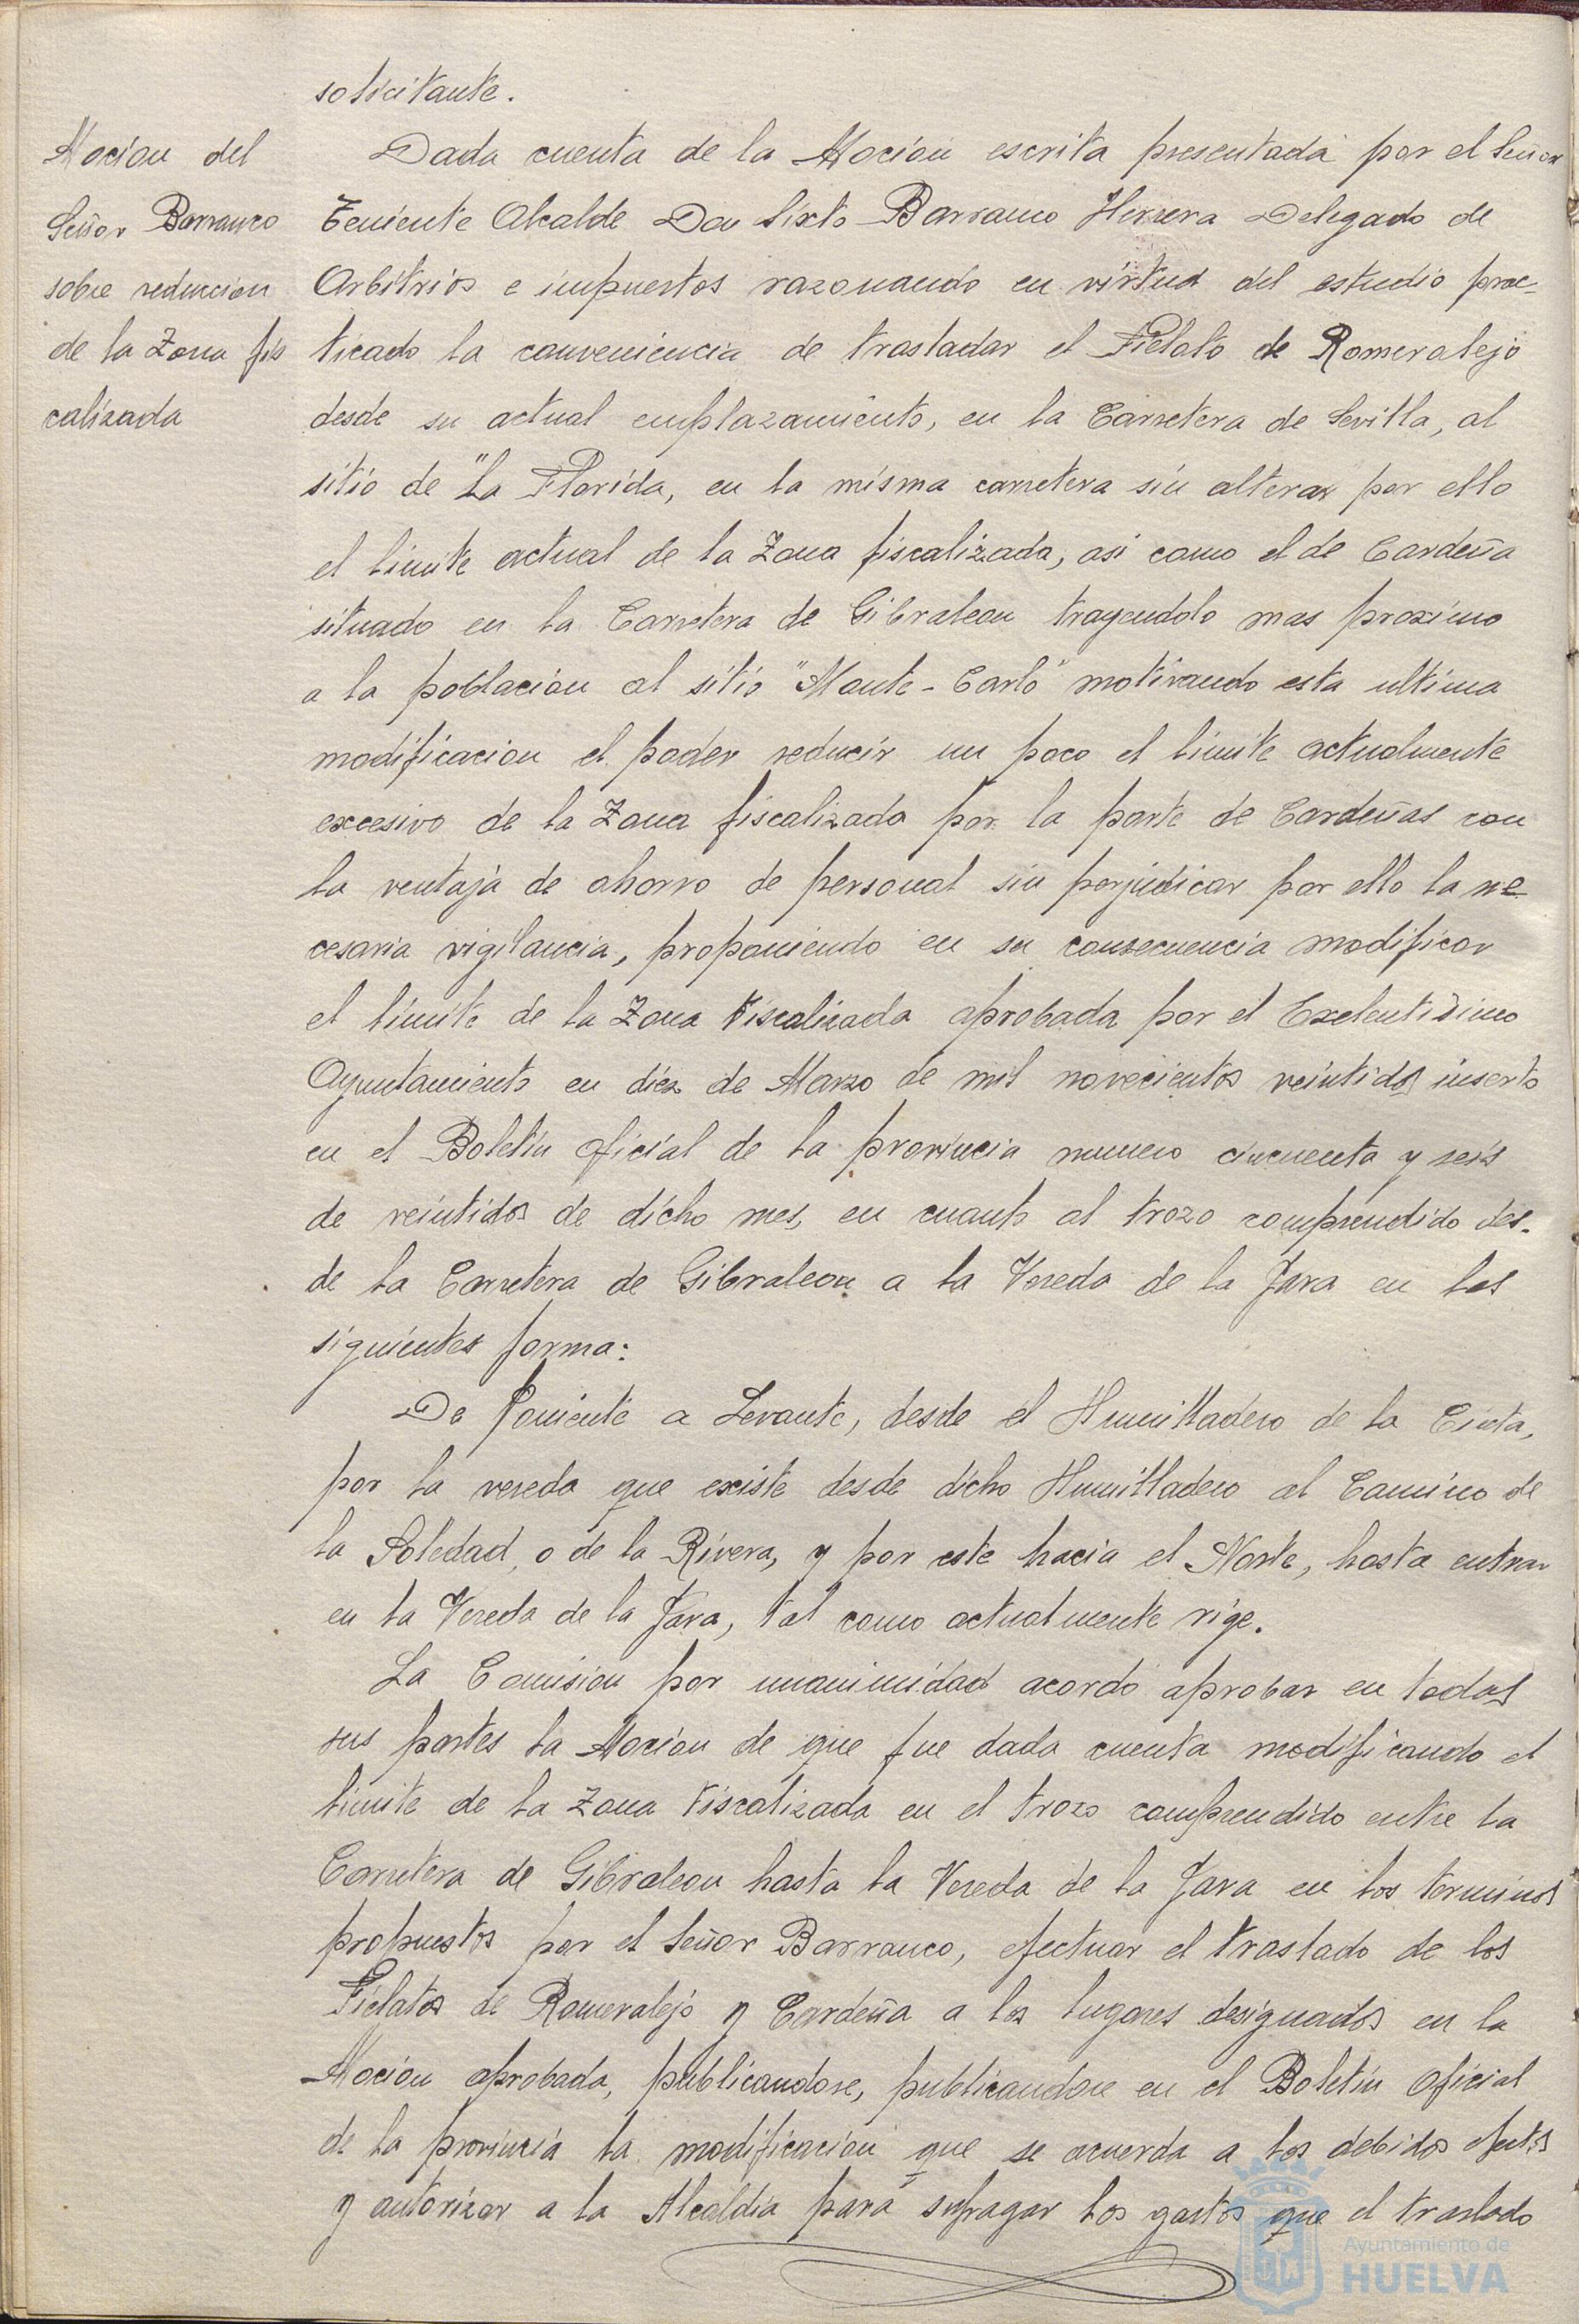 solicitante.
Mocion del
Señor Barranco
sobre reduccion
de la Zona fis
calizada
Dada cuenta de la Mocion escrita presentada por el Señor
Teniente Alcalde Don Sixto Barranco Herrera Delegado de
Arbitrios e impuestos razonando en virtud del estudio prac-
ticado la conveniencia de trasladar el Fielato de Romeralejo
desde su actual emplazamiento, en la Carretera de Sevilla, al
sitio de "La Florida, en la misma carretera sin alterar por ello
el limite actual de la Zona fiscalizada, asi como el de Cardeña
situado en la Carretera de Gibraleon trayendolo mas proximo
a la poblacion al sitio "Monte-Carlo" motivando esta ultima
modificacion el poder reducir un poco el limite actualmente
excesivo de la Zona fiscalizada por la parte de Cardeñas con
la ventaja de ahorro de personal sin perjudicar por ello la ne-
cesaria vigilancia, proponiendo en su consecuencia modificar
el limite de la Zona Fiscalizada aprobada por el Exelentisimo
Ayuntamiento en diez de Marzo de mil novecientos veintidos inserto
en el Boletin oficial de la provincia numero cincuenta y seis
de veintidos de dicho mes, en cuanto al trozo comprendido des-
de la Carretera de Gibraleon a la Vereda de la Jara en las
siguientes forma:
De Poniente a Levante, desde el Humilladero de la Cinta,
por la vereda que existe desde dicho Humilladero al Camino de
la Soledad, o de la Rivera, y por este hacia el Norte, hasta entrar
en la Vereda de la Jara, tal como actualmente rige.
La Comision por unanimidad acordo aprobar en todas
sus partes la Mocion de que fue dada cuenta modificando el
limite de la Zona Fiscalizada en el trozo comprendido entre la
Carretera de Gibraleon hasta la Vereda de la Jara en los terminos
propuestos por el Señor Barranco, efectuar el traslado de los
Fielatos de Romeralejo y Cardeña a los lugares designados en la
Mocion aprobada, publicandose, publicandose en el Boletin Oficial
de la provincia la modificacion que se acuerda a los debidos efectos
y autorizar a la Alcaldia para sufragar los gastos que el traslado
Ayuntamiento de
HUELVA